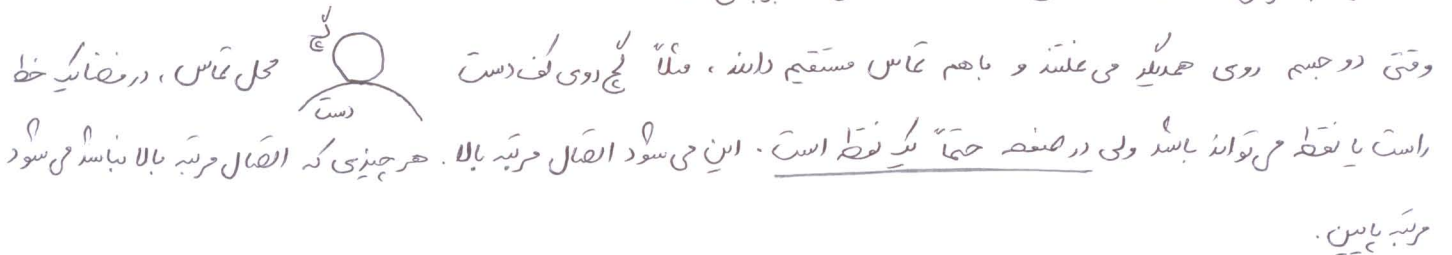 وقتی دو جسم روی همدیگر می غلتند و باهم تماس مستقیم دارند، مثلاً گچ روی کف دست
گچ
دست
محل تماس، در فضا یک خط
راست یا نقطه می تواند باشد ولی در صفحه حتماً یک نقطه است. این می شود اتصال مرتبه بالا. هر چیزی که اتصال مرتبه بالا نباشد می شود
مرتبه پایین.